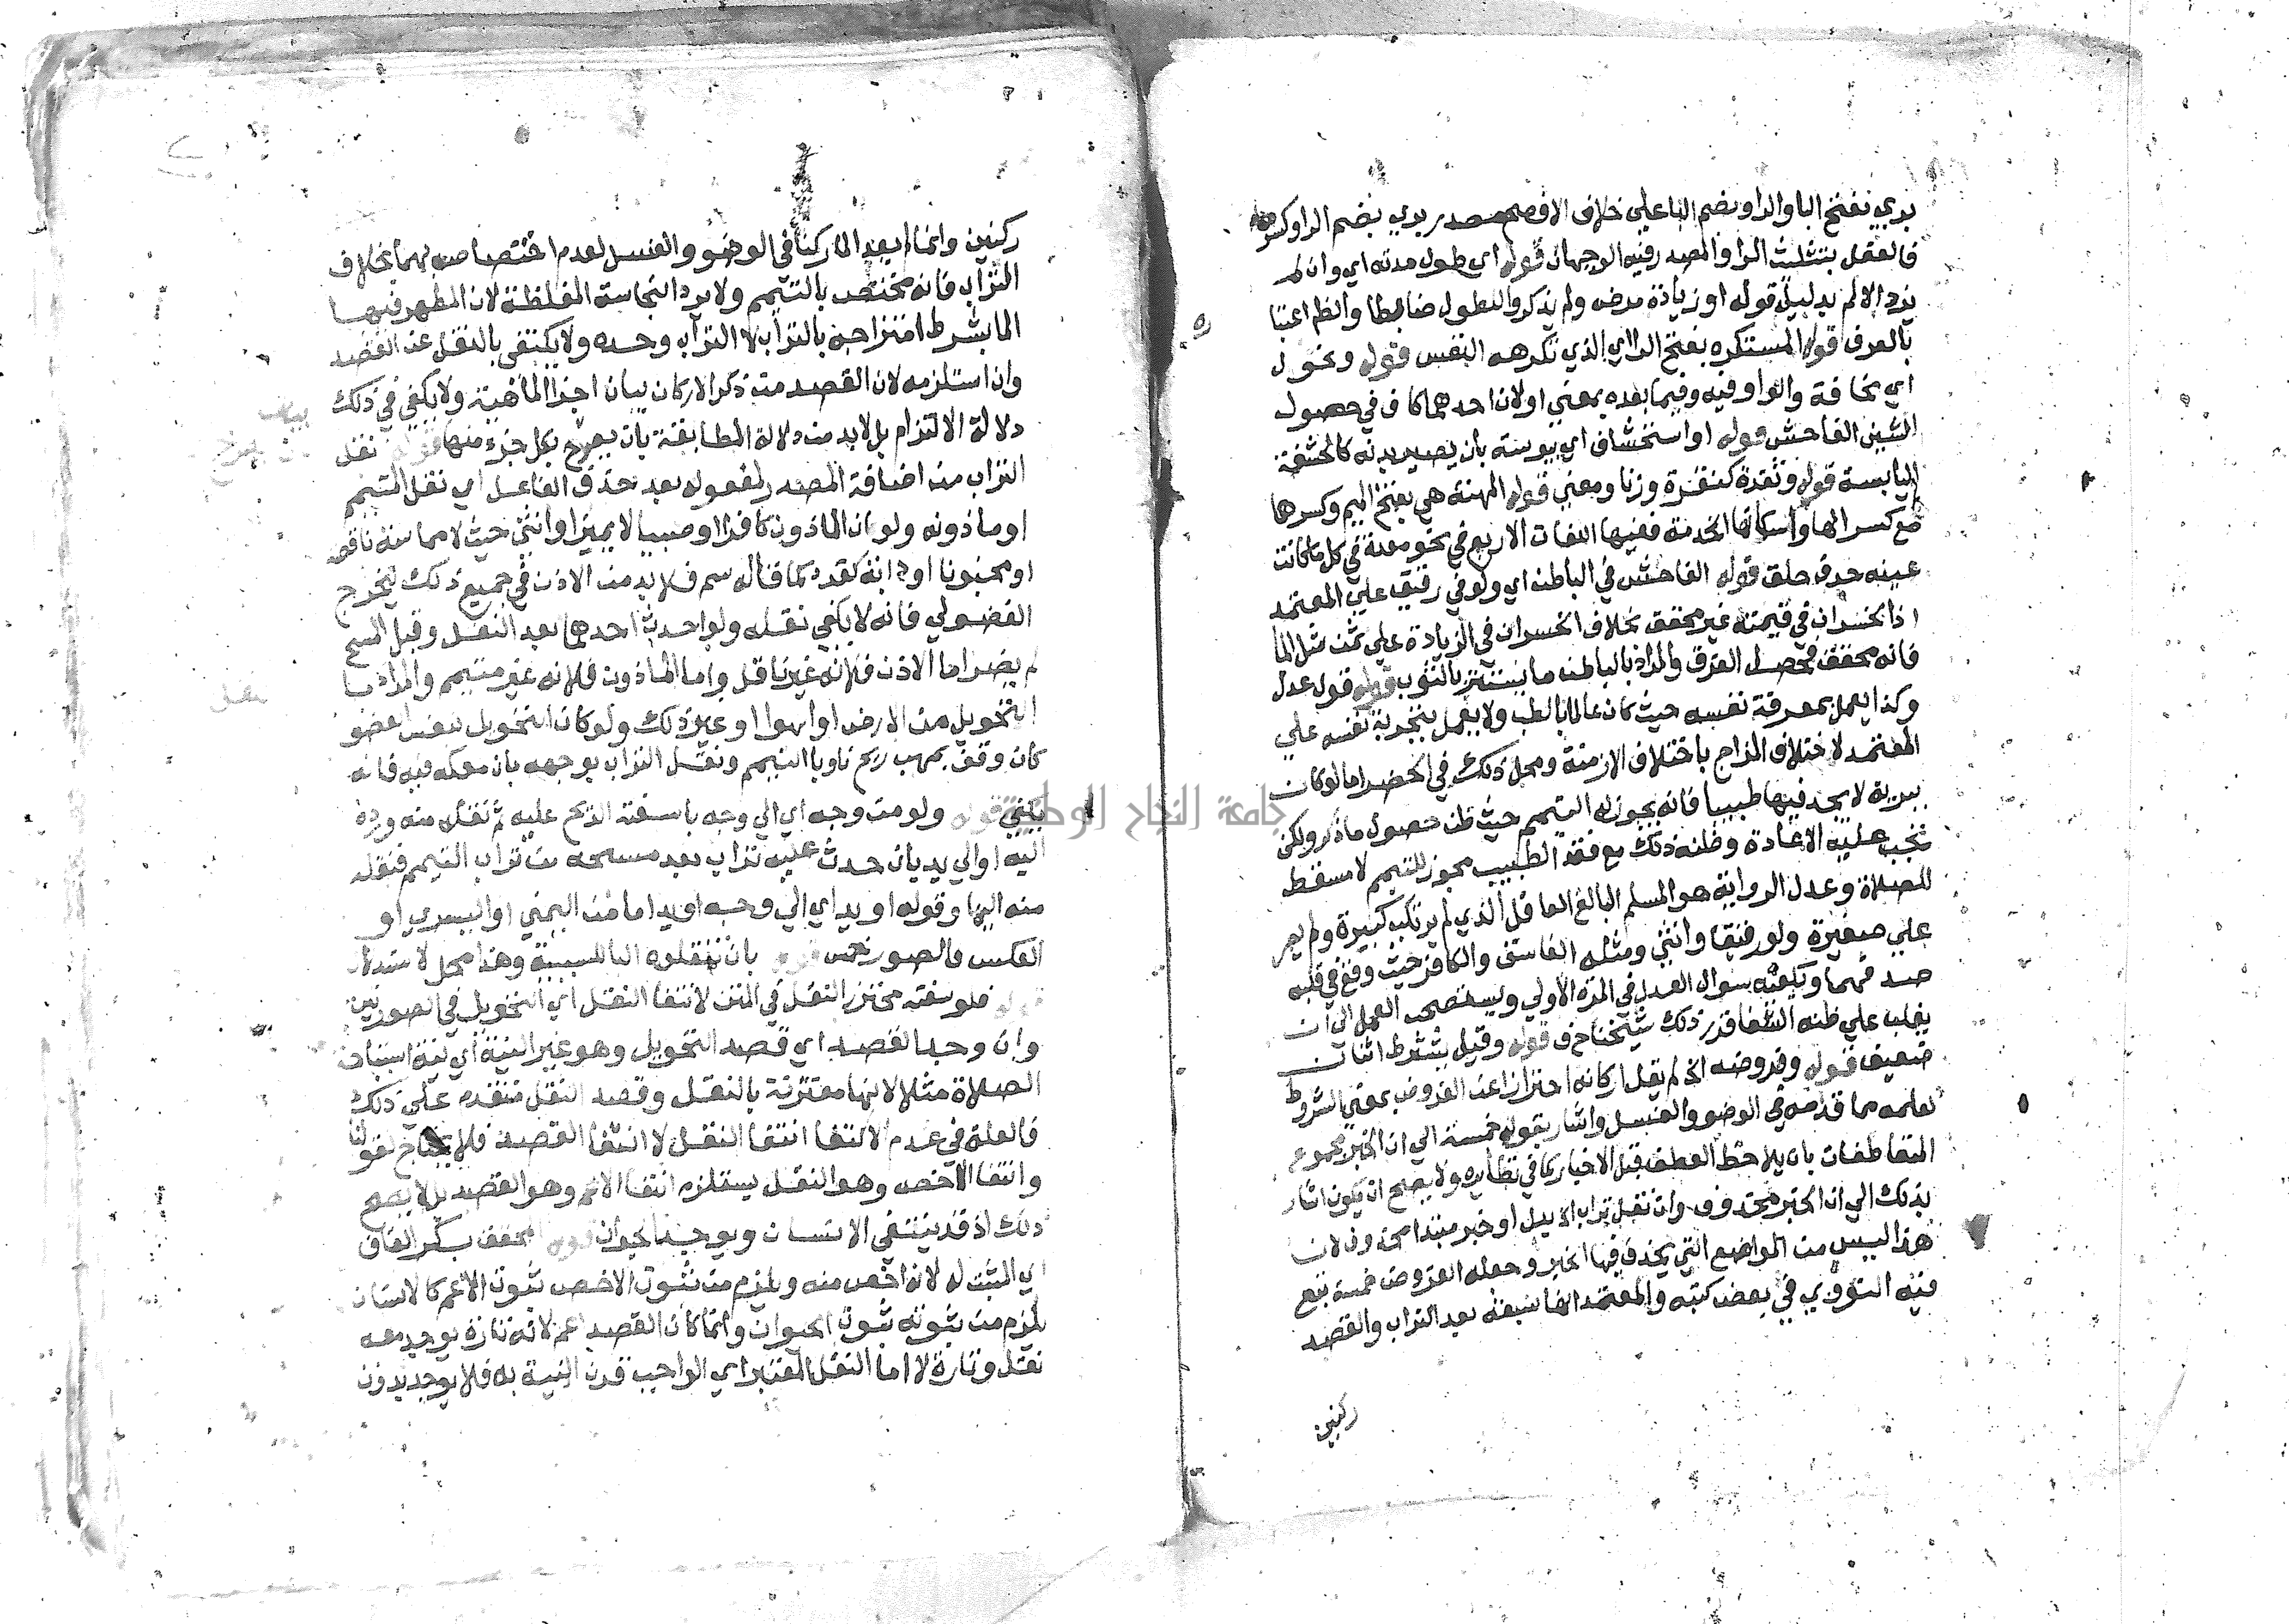 بفتح البا والرا وبضم البا علي خلاف الافصح مصدر بري بضم الرا وكسر
فالفعل بتثليث الرا والمصدر فيه الوجهان قوله اي طول مدته اي وان لم
يزد الالم بدليل قوله او زيادة مرضه ولم يذكروا للطول ضابطا والظاهر
بالعرف قوله المستكره بفتح الرا اي الذي تكرهه النفس قوله ونحول
اي نحافة والواو فيه وفيما بعده بمعني او لان احدهما كاف في حصول
الشين الفاحش قوله او استحشاف اي يبوسة بأن يصير بدنه كالحشفة
اليابسة قوله وثغرة كنقرة وزنا ومعني قوله المهنة هي بفتح الميم وكسرها
مع كسر الها واسكانها الخدمة ففيها اللغات الاربع في نحو معدة في كل ما كانت
عينه حرف حلق قوله الفاحش في الباطن اي ولو في رقيق علي المعتمد
اذ الخسران في قيمته غير محقق بخلاف الخسران في الزيادة علي ثمن مثل الما
فانه محقق فحصل الفرق والمراد بالباطن ما يستتر بالثوب قوله قول عدل
وكذا يعمل بمعرفة نفسه حيث كان عالما بالطب ولا يعمل بتجربة نفسه علي
المعتمد لاختلاف المزاج باختلاف الازمنة ومحل ذلك في الحضر اما لو كان
ببرية لا يجد فيها طبيبا فانه يجوز له التيمم حيث ظن حصول ما ذكر ولكن
تجب عليه الاعادة وظنه ذلك مع فقد الطبيب مجوز للتيمم لا مسقط
للصلاة وعدل الرواية هو المسلم البالغ العاقل الذي لم يرتكب كبيرة ولم يصر
علي صغيرة ولو رقيقا وانثي ومثله الفاسق والكافر حيث وقع في قلبه
صدقهما ويكفيه سوال العدل في المرة الاولي ويستصحب العمل الي ان
يغلب علي ظنه الشفا قرر ذلك شيخنا ح ف قوله وقيل يشترط اثنان
ضعيف قوله وفروضه الخ لم يقل اركانه احترازا عند الفروض بمعني الشروط
لعلمه مما قدمه في الوضو والغسل واشار بقوله خمسة الي ان الخبر مجموع
المتعاطفات بان يلاحظ العطف قبل الاخبار كما في نظايره ولا يصح ان يكون اشار
بذلك الي ان الخبر محذوف وان نقل تراب الخ بدل او خبر مبتدا محذوف لان
هذا ليس من المواضع التي يحذف فيها الخبر وجعله الفروض خمسة تبع
فيه النووي في بعض كتبه والمعتمد انها سبعة بعد التراب والقصد
ركنين
ركنين وانما لم يعد الما ركنا في الوضو والغسل لعدم اختصاصه بهما بخلاف
التراب فانه مختص بالتيمم ولا يرد النجاسة المغلظة لان المطهر فيها
الما بشرط امتزاجه بالتراب لا التراب وحده ولا يكتفي بالنقل عن القصد
وان استلزمه لان القصد من ذكر الاركان بيان اجزا الماهية ولا يكفي في ذلك
دلالة الالتزام بل لابد من دلالة المطابقة بان يصرح بكل جزء منها قوله نقل
التراب من اضافة المصدر لمفعوله بعد حذف الفاعل اي نقل المتيمم
او ماذونه ولو كان الماذون كافرا او صبيا لا يميز او انثي حيث لا مماسة ناقضة
او مجنونا او دابة كقرد كما قاله سم فلا بد من الاذن في جميع ذلك ليخرج
الفضولي فانه لا يكفي نقله ولو احدث احدهما بعد النقل وقبل المسح
لم يضر اما الاذن فلانه غير ناقل واما الماذون فلانه غير متيمم والمراد بها
التحويل من الارض او الهوا او غير ذلك ولو كان التحويل بنفس العضو
كان وقف بمهب ريح ناويا التيمم ونقل التراب بوجهه بان معكه فيه فانه
يكفي قوله ولو من وجه اي الي وجه بان سفته الريح عليه ثم نقله منه ورده
اليه او الي يد بان حدث عليه تراب بعد مسحه من تراب التيمم فنقله
منه اليها وقوله او يد اي الي وجه او يد اما من اليمني او اليسري او
العكس فالصور خمس قوله بان تنقلوه البا للسببية وهذا محل لاستدلال
قوله فلو سفته محترز النقل في المتن لانتفا النقل اي التحويل في الصورتين
وان وجد القصد اي قصد التحويل وهو غير النية اي نية استباحة
الصلاة مثلا لانها مقترنة بالنقل وقصد النقل متقدم علي ذلك
فالعلة في عدم الاكتفا انتفا النقل لا انتفا القصد فلا يحتاج لقولنا
وانتفا الاخص وهو النقل يستلزم انتفا الاعم وهو القصد بل لا يصح
ذلك اذ قد ينتفي الانسان ويوجد الحيوان قوله المحقق بكسر القاف
اي المثبت له لانه اخص منه ويلزم من ثبوت الاخص ثبوت الاعم كالانسان
يلزم من ثبوته ثبوت الحيوان وانما كان القصد اعم لانه تارة يوجد معه
نقل وتارة لا اما النقل المعتبر اي الواجب قرن النية به فلا يوجد بدون
جامعة النجاح الوطنية